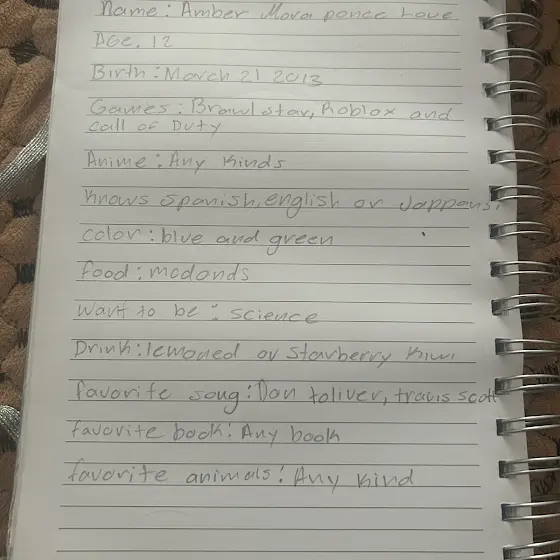 Name: Amber Mora ponce Love
AGe. 12
Birth: March 21 2013
Games: Brawl star, Roblox and
call of Duty
Anime: Any kinds
knows spanish, english or Jappans.
color: blue and green
food: mcdonds
want to be: science
Drink: lemoned or Starberry kiwi
favorite song: Don toliver, travis scott
favorite book: Any book
favorite animals: Any kind